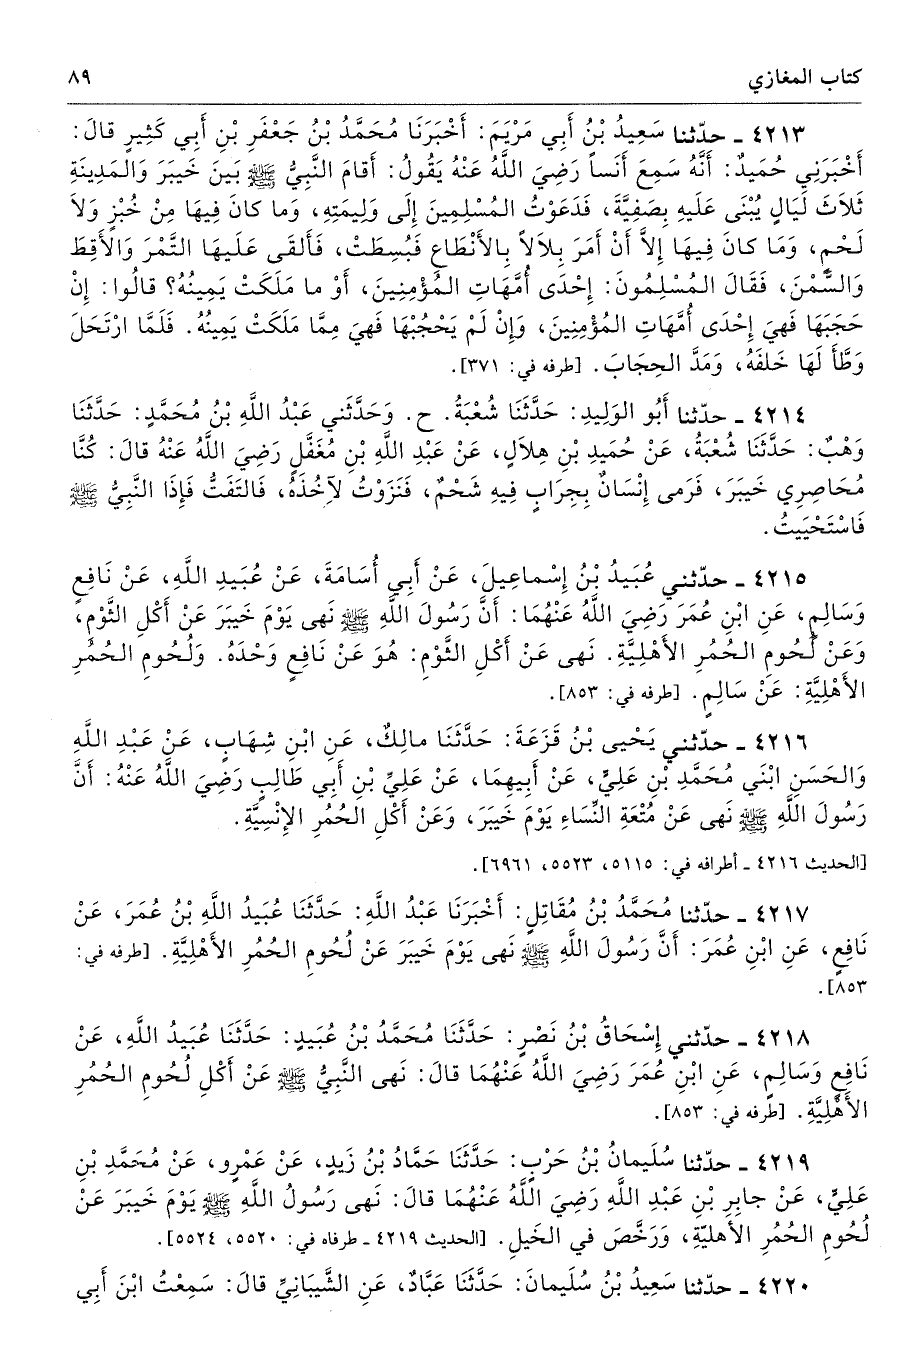 كتاب المغازي ٨٩
٤٢١٣ ـ حدّثنا سَعِيدُ بْنُ أَبِي مَرْيَمَ: أَخْبَرَنَا مُحَمَّدُ بْنُ جَعْفَرِ بْنِ أَبِي كَثِيرٍ قالَ:
أَخْبَرَنِي حُمَيدٌ: أَنَّهُ سَمِعَ أَنَساً رَضِيَ اللَّهُ عَنْهُ يَقُولُ: أَقامَ النَّبِيُّ ﷺ بَينَ خَيبَرَ وَالمَدِينَةِ
ثَلَاثَ لَيَالٍ يُبْنَى عَلَيهِ بِصَفِيَّةَ، فَدَعَوْتُ المُسْلِمِينَ إِلَى وَلِيمَتِهِ، وَما كانَ فِيهَا مِنْ خُبْزٍ وَلَا
لَحْمٍ، وَمَا كانَ فِيهَا إِلَّا أَنْ أَمَرَ بِلَالاً بِالأَنْطَاعِ فَبُسِطَتْ، فَأَلقَى عَلَيهَا التَّمْرَ وَالأَقِطَ
وَالسَّمْنَ، فَقَالَ المُسْلِمُونَ: إِحْدَى أُمَّهَاتِ المُؤْمِنِينَ، أَوْ ما مَلَكَتْ يَمِينُهُ؟ قالُوا: إِنْ
حَجَبَهَا فَهِيَ إِحْدَى أُمَّهَاتِ المُؤْمِنِينَ، وَإِنْ لَمْ يَحْجُبْهَا فَهِيَ مِمَّا مَلَكَتْ يَمِينُهُ. فَلَمَّا ارْتَحَلَ
وَطَّأَ لَهَا خَلفَهُ، وَمَدَّ الحِجَابَ. [طرفه في: ٣٧١].
٤٢١٤ ـ حدّثنا أَبُو الوَلِيدِ: حَدَّثَنَا شُعْبَةُ. ح. وَحَدَّثَنِي عَبْدُ اللَّهِ بْنُ مُحَمَّدٍ: حَدَّثَنَا
وَهْبٌ: حَدَّثَنَا شُعْبَةُ، عَنْ حُمَيدِ بْنِ هِلَالٍ، عَنْ عَبْدِ اللَّهِ بْنِ مُغَفَّلٍ رَضِيَ اللَّهُ عَنْهُ قالَ: كُنَّا
مُحَاصِرِي خَيبَرَ، فَرَمى إِنْسَانٌ بِجِرَابٍ فِيهِ شَحْمٌ، فَنَزَوْتُ لآخُذَهُ، فَالتَفَتُّ فَإِذَا النَّبِيُّ ﷺ
فَاسْتَحْيَيتُ.
٤٢١٥ ـ حدّثني عُبَيدُ بْنُ إِسْماعِيلَ، عَنْ أَبِي أُسَامَةَ، عَنْ عُبَيدِ اللَّهِ، عَنْ نَافِعٍ
وَسَالِمٍ، عَنِ ابْنِ عُمَرَ رَضِيَ اللَّهُ عَنْهُمَا: أَنَّ رَسُولَ اللَّهِ ﷺ نَهى يَوْمَ خَيبَرَ عَنْ أَكْلِ الثَّوْمِ،
وَعَنْ لُحُومِ الحُمُرِ الأَهْلِيَّةِ. نَهى عَنْ أَكْلِ الثَّوْمِ: هُوَ عَنْ نَافِعٍ وَحْدَهُ. وَلُحُومِ الحُمُرِ
الأَهْلِيَّةِ: عَنْ سَالِمٍ. [طرفه في: ٨٥٣].
٤٢١٦ ـ حدّثني يَحْيى بْنُ قَزَعَةَ: حَدَّثَنَا مالِكٌ، عَنِ ابْنِ شِهَابٍ، عَنْ عَبْدِ اللَّهِ
وَالحَسَنِ ابْنَي مُحَمَّدِ بْنِ عَلِيٍّ، عَنْ أَبِيهِمَا، عَنْ عَلِيِّ بْنِ أَبِي طَالِبٍ رَضِيَ اللَّهُ عَنْهُ: أَنَّ
رَسُولَ اللَّهِ ﷺ نَهى عَنْ مُتْعَةِ النِّسَاءِ يَوْمَ خَيبَرَ، وَعَنْ أَكْلِ الحُمُرِ الإِنْسِيَّةِ.
[الحديث ٤٢١٦ ـ أطرافه في: ٥١١٥، ٥٥٢٣، ٦٩٦١].
٤٢١٧ ـ حدّثنا مُحَمَّدُ بْنُ مُقَاتِلٍ: أَخْبَرَنَا عَبْدُ اللَّهِ: حَدَّثَنَا عُبَيدُ اللَّهِ بْنُ عُمَرَ، عَنْ
نَافِعٍ، عَنِ ابْنِ عُمَرَ: أَنَّ رَسُولَ اللَّهِ ﷺ نَهى يَوْمَ خَيبَرَ عَنْ لُحُومِ الحُمُرِ الأَهْلِيَّةِ. [طرفه في:
٨٥٣].
٤٢١٨ ـ حدّثني إِسْحَاقُ بْنُ نَصْرٍ: حَدَّثَنَا مُحَمَّدُ بْنُ عُبَيدٍ: حَدَّثَنَا عُبَيدُ اللَّهِ، عَنْ
نَافِعٍ وَسَالِمٍ، عَنِ ابْنِ عُمَرَ رَضِيَ اللَّهُ عَنْهُمَا قالَ: نَهى النَّبِيُّ ﷺ عَنْ أَكْلِ لُحُومِ الحُمُرِ
الأَهْلِيَّةِ. [طرفه في: ٨٥٣].
٤٢١٩ ـ حدّثنا سُلَيمانُ بْنُ حَرْبٍ: حَدَّثَنَا حَمَّادُ بْنُ زَيدٍ، عَنْ عَمْرٍو، عَنْ مُحَمَّدِ بْنِ
عَلِيٍّ، عَنْ جابِرِ بْنِ عَبْدِ اللَّهِ رَضِيَ اللَّهُ عَنْهُمَا قالَ: نَهى رَسُولُ اللَّهِ ﷺ يَوْمَ خَيبَرَ عَنْ
لُحُومِ الحُمُرِ الأَهليّة، وَرَخَّصَ في الخَيلِ. [الحديث ٤٢١٩ ـ طرفاه في: ٥٥٢٠، ٥٥٢٤].
٤٢٢٠ ـ حدّثنا سَعِيدُ بْنُ سُلَيمانَ: حَدَّثَنَا عَبَّادٌ، عَنِ الشَّيبَانِيِّ قالَ: سَمِعْتُ ابْنَ أَبِي